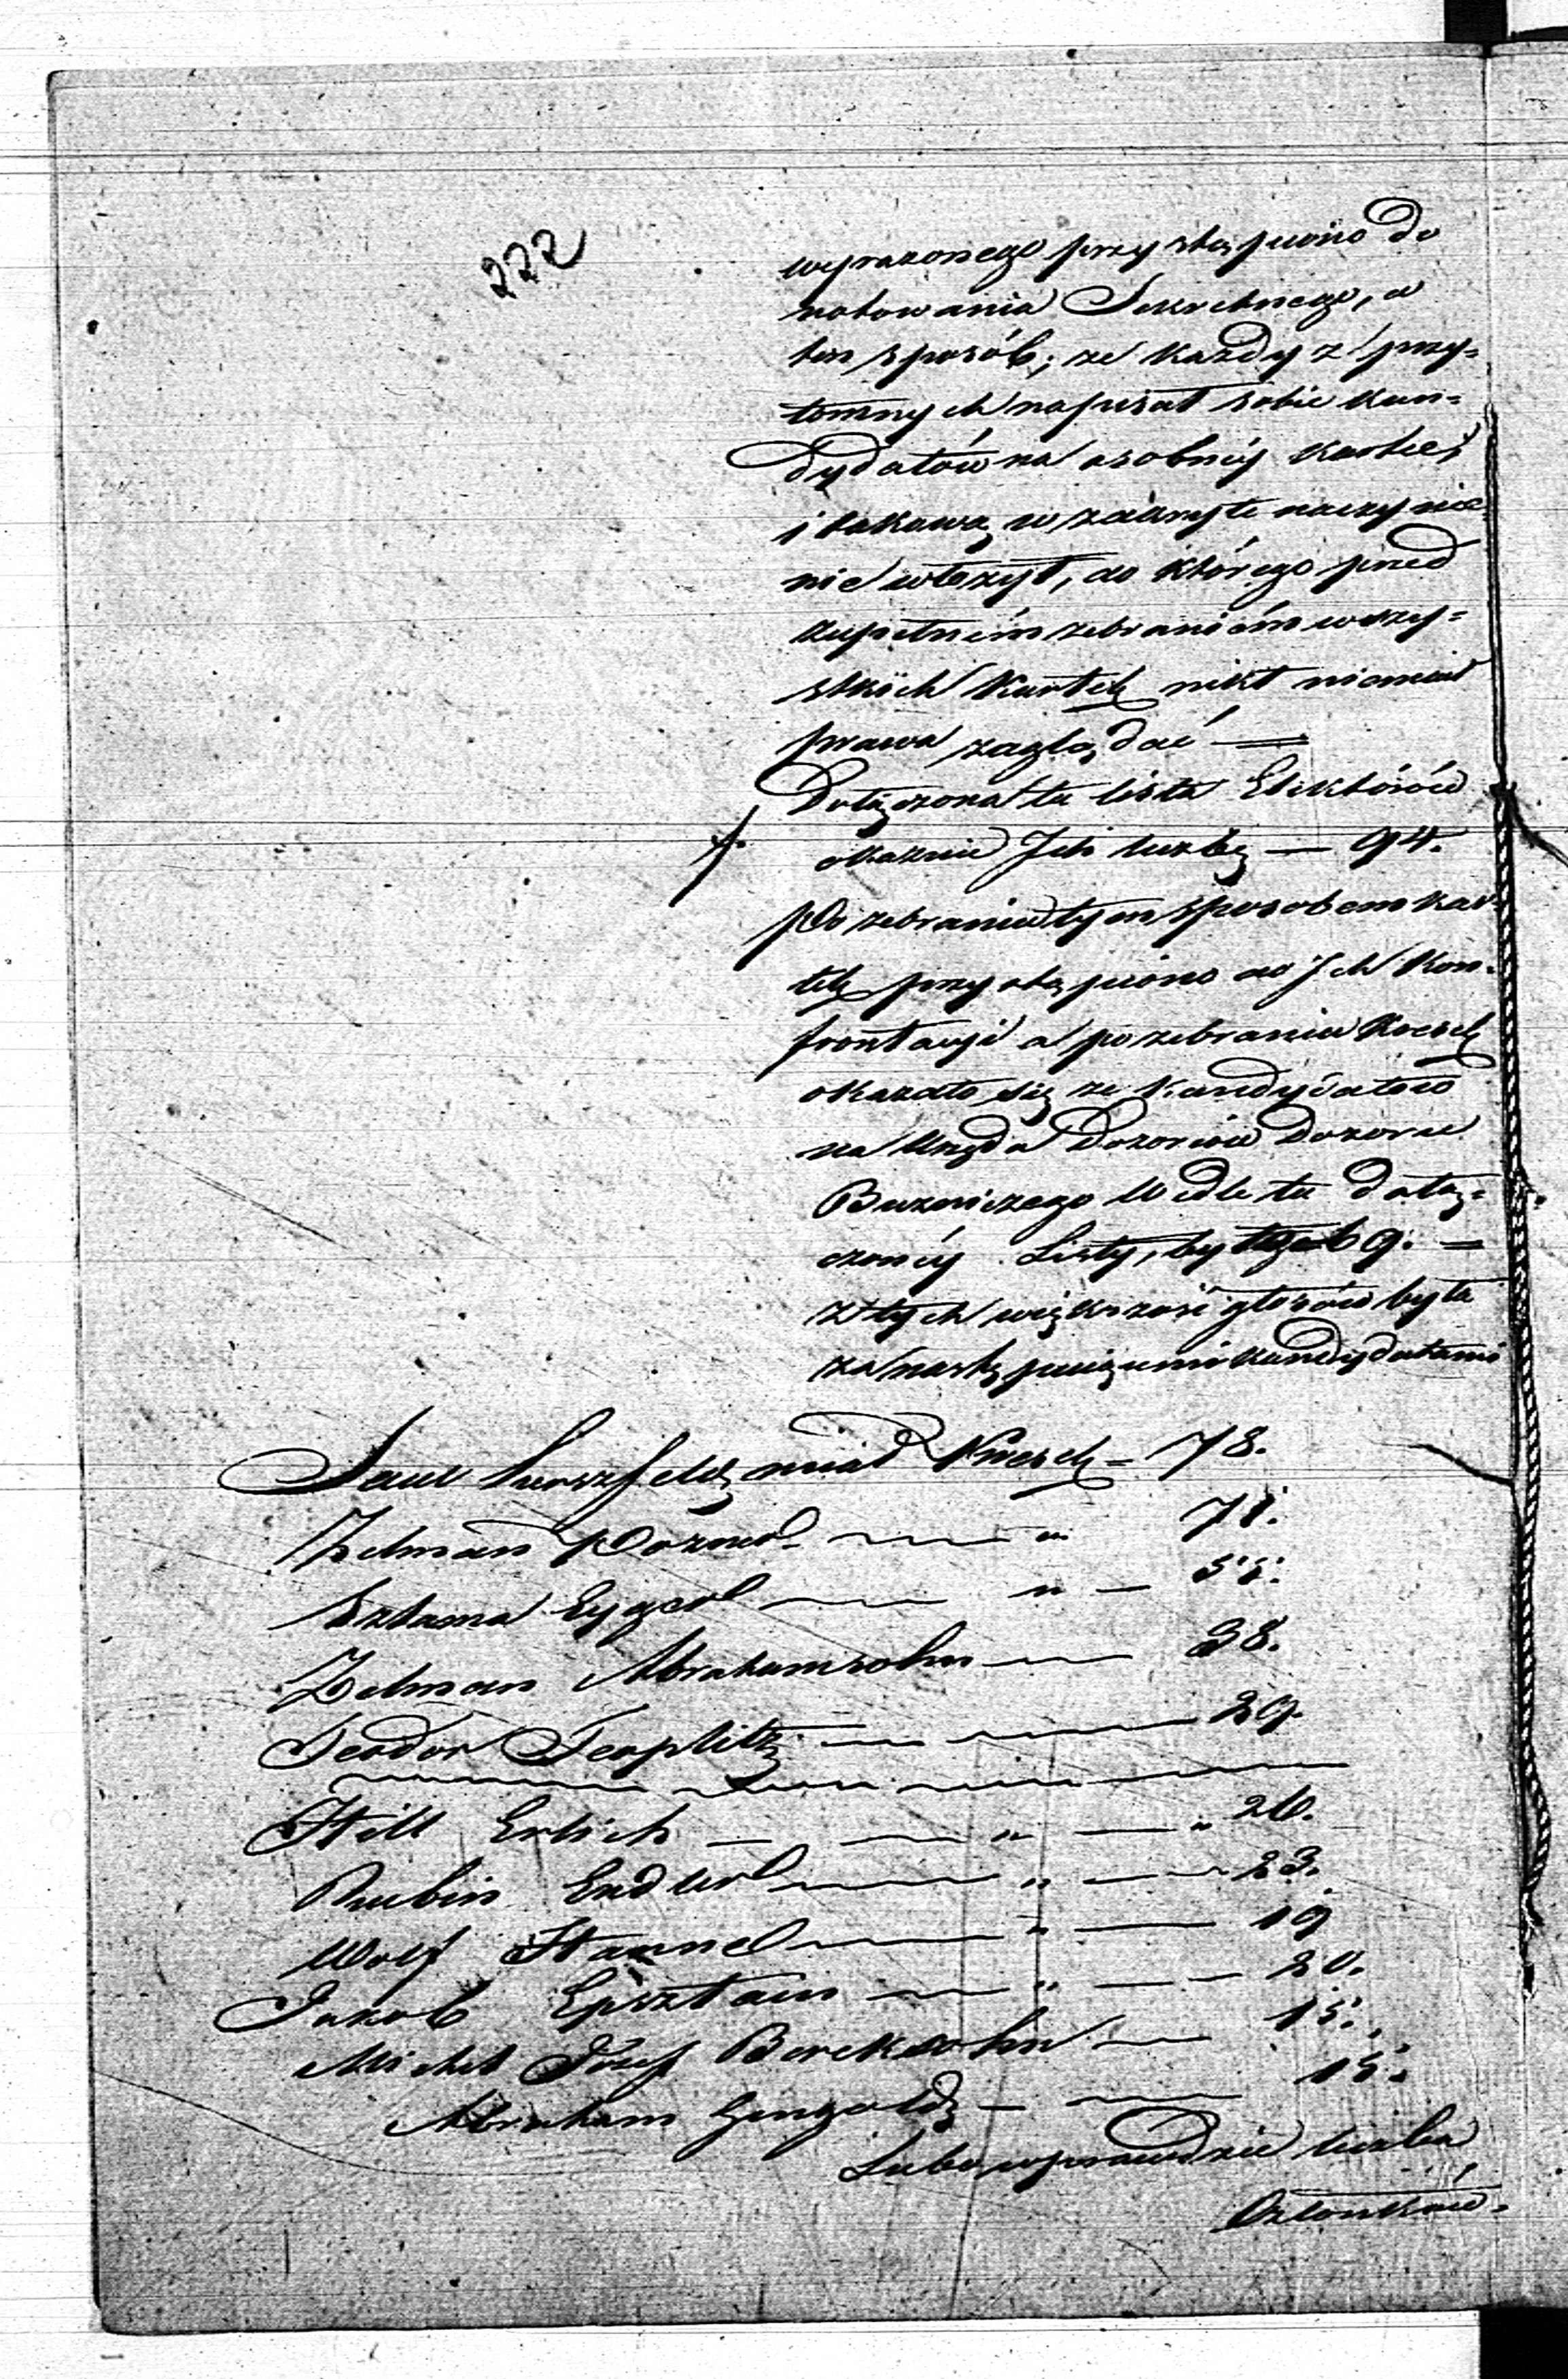 222
wyrazonego przystąpiono do
wotowania Sekretnego, w
ten sposób, ze każdy z przy=
tomnych napisał sobie kan=
dydatów na osobnéy kartce,
i takową w zakryte naczynie
nie włozył, do którego przed
zupełném zebraniém wszy=
stkich Kartek nikt niemiał
prawa zaglądać —
Dołączona tu lista Elektórów
okazuie Ich liczbę — 94.
po zebraniu tym sposobem kar=
tek przystąpiono do Ich Kon=
frontacyi a po zebraniu Kresek
okazało się ze Kandydatów
na Urząd Dozorców Dozoru
Bozniczego Wedle tu dołą=
czonéy Listy, było 69. =
z tych większość głosów była
za następuiącemi kandydatami
Saul Hirszfeld, miał Kresek = 78.
Zelman Pozner — " 71.
Szlama Eyger — " — 55.
Zelman Abrahamsohn — 38.
Teodor Teoplitz — 29.
Hill Erlich — " — " 26.
Rubin Endler — " — 23.
Wolf Hannel — " — 19
Jakob Epsztain — " — 20.
Michel Józef Bereksohn — 15.
Abraham Gengold — 15.
Lubo wprawdzie liczba
Członków=